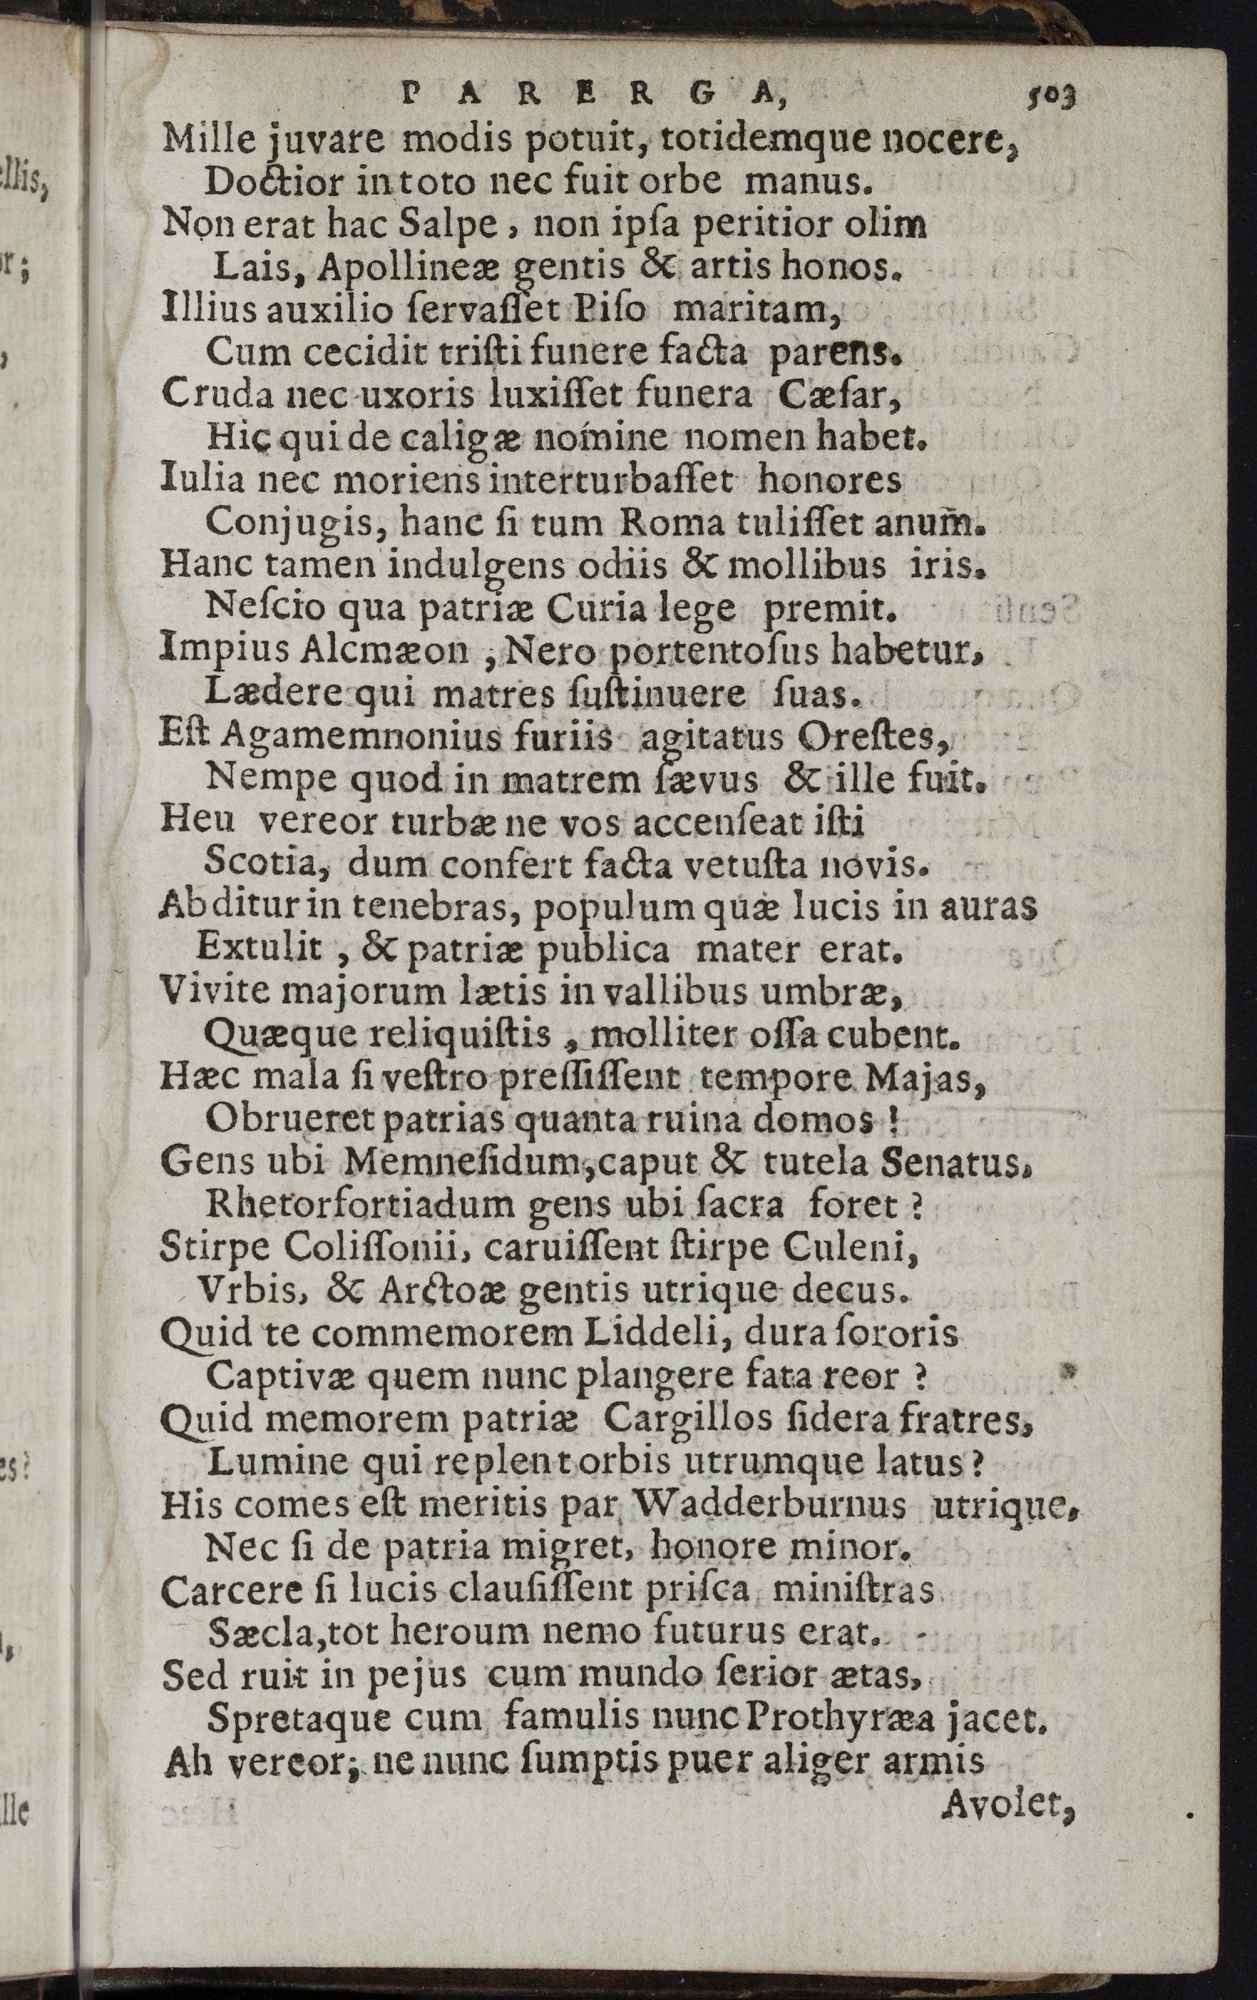 PARERGA, 503
Mille juvare modis potuit, totidemque nocere,
Doctior in toto nec fuit orbe manus.
Non erat hac Salpe, non ipſa peritior olim
Lais, Apollineæ gentis & artis honos.
Illius auxilio ſervaſſet Piſo maritam,
Cum cecidit triſti funere facta parens.
Cruda nec uxoris luxiſſet funera Cæſar,
Hic qui de caligæ nomine nomen habet.
Iulia nec moriens interturbaſſet honores
Conjugis, hanc ſi tum Roma tuliſſet anum.
Hanc tamen indulgens odiis & mollibus iris.
Neſcio qua patriæ Curia lege premit.
Impius Alcmæon, Nero portentoſus habetur,
Lædere qui matres ſuſtinuere ſuas.
Eſt Agamemnonius furiis agitatus Oreſtes,
Nempe quod in matrem ſævus & ille fuit.
Heu vereor turbæ ne vos accenſeat iſti
Scotia, dum confert facta vetuſta novis.
Abditur in tenebras, populum quæ lucis in auras
Extulit, & patriæ publica mater erat.
Vivite majorum lætis in vallibus umbræ,
Quæque reliquiſtis, molliter oſſa cubent.
Hæc mala ſi veſtro preſſiſſent tempore Majas,
Obrueret patrias quanta ruina domos!
Gens ubi Memneſidum, caput & tutela Senatus,
Rhetorfortiadum gens ubi ſacra foret?
Stirpe Coliſſonii, caruiſſent ſtirpe Culeni,
Vrbis, & Arctoæ gentis utrique decus.
Quid te commemorem Liddeli, dura ſororis
Captivæ quem nunc plangere fata reor?
Quid memorem patriæ Cargillos ſidera fratres,
Lumine qui replent orbis utrumque latus?
His comes eſt meritis par Wadderburnus utrique,
Nec ſi de patria migret, honore minor.
Carcere ſi lucis clauſiſſent priſca miniſtras
Sæcla, tot heroum nemo futurus erat.
Sed ruit in pejus cum mundo ſerior ætas,
Spretaque cum famulis nunc Prothyræa jacet.
Ah vereor; ne nunc ſumptis puer aliger armis
Avolet,